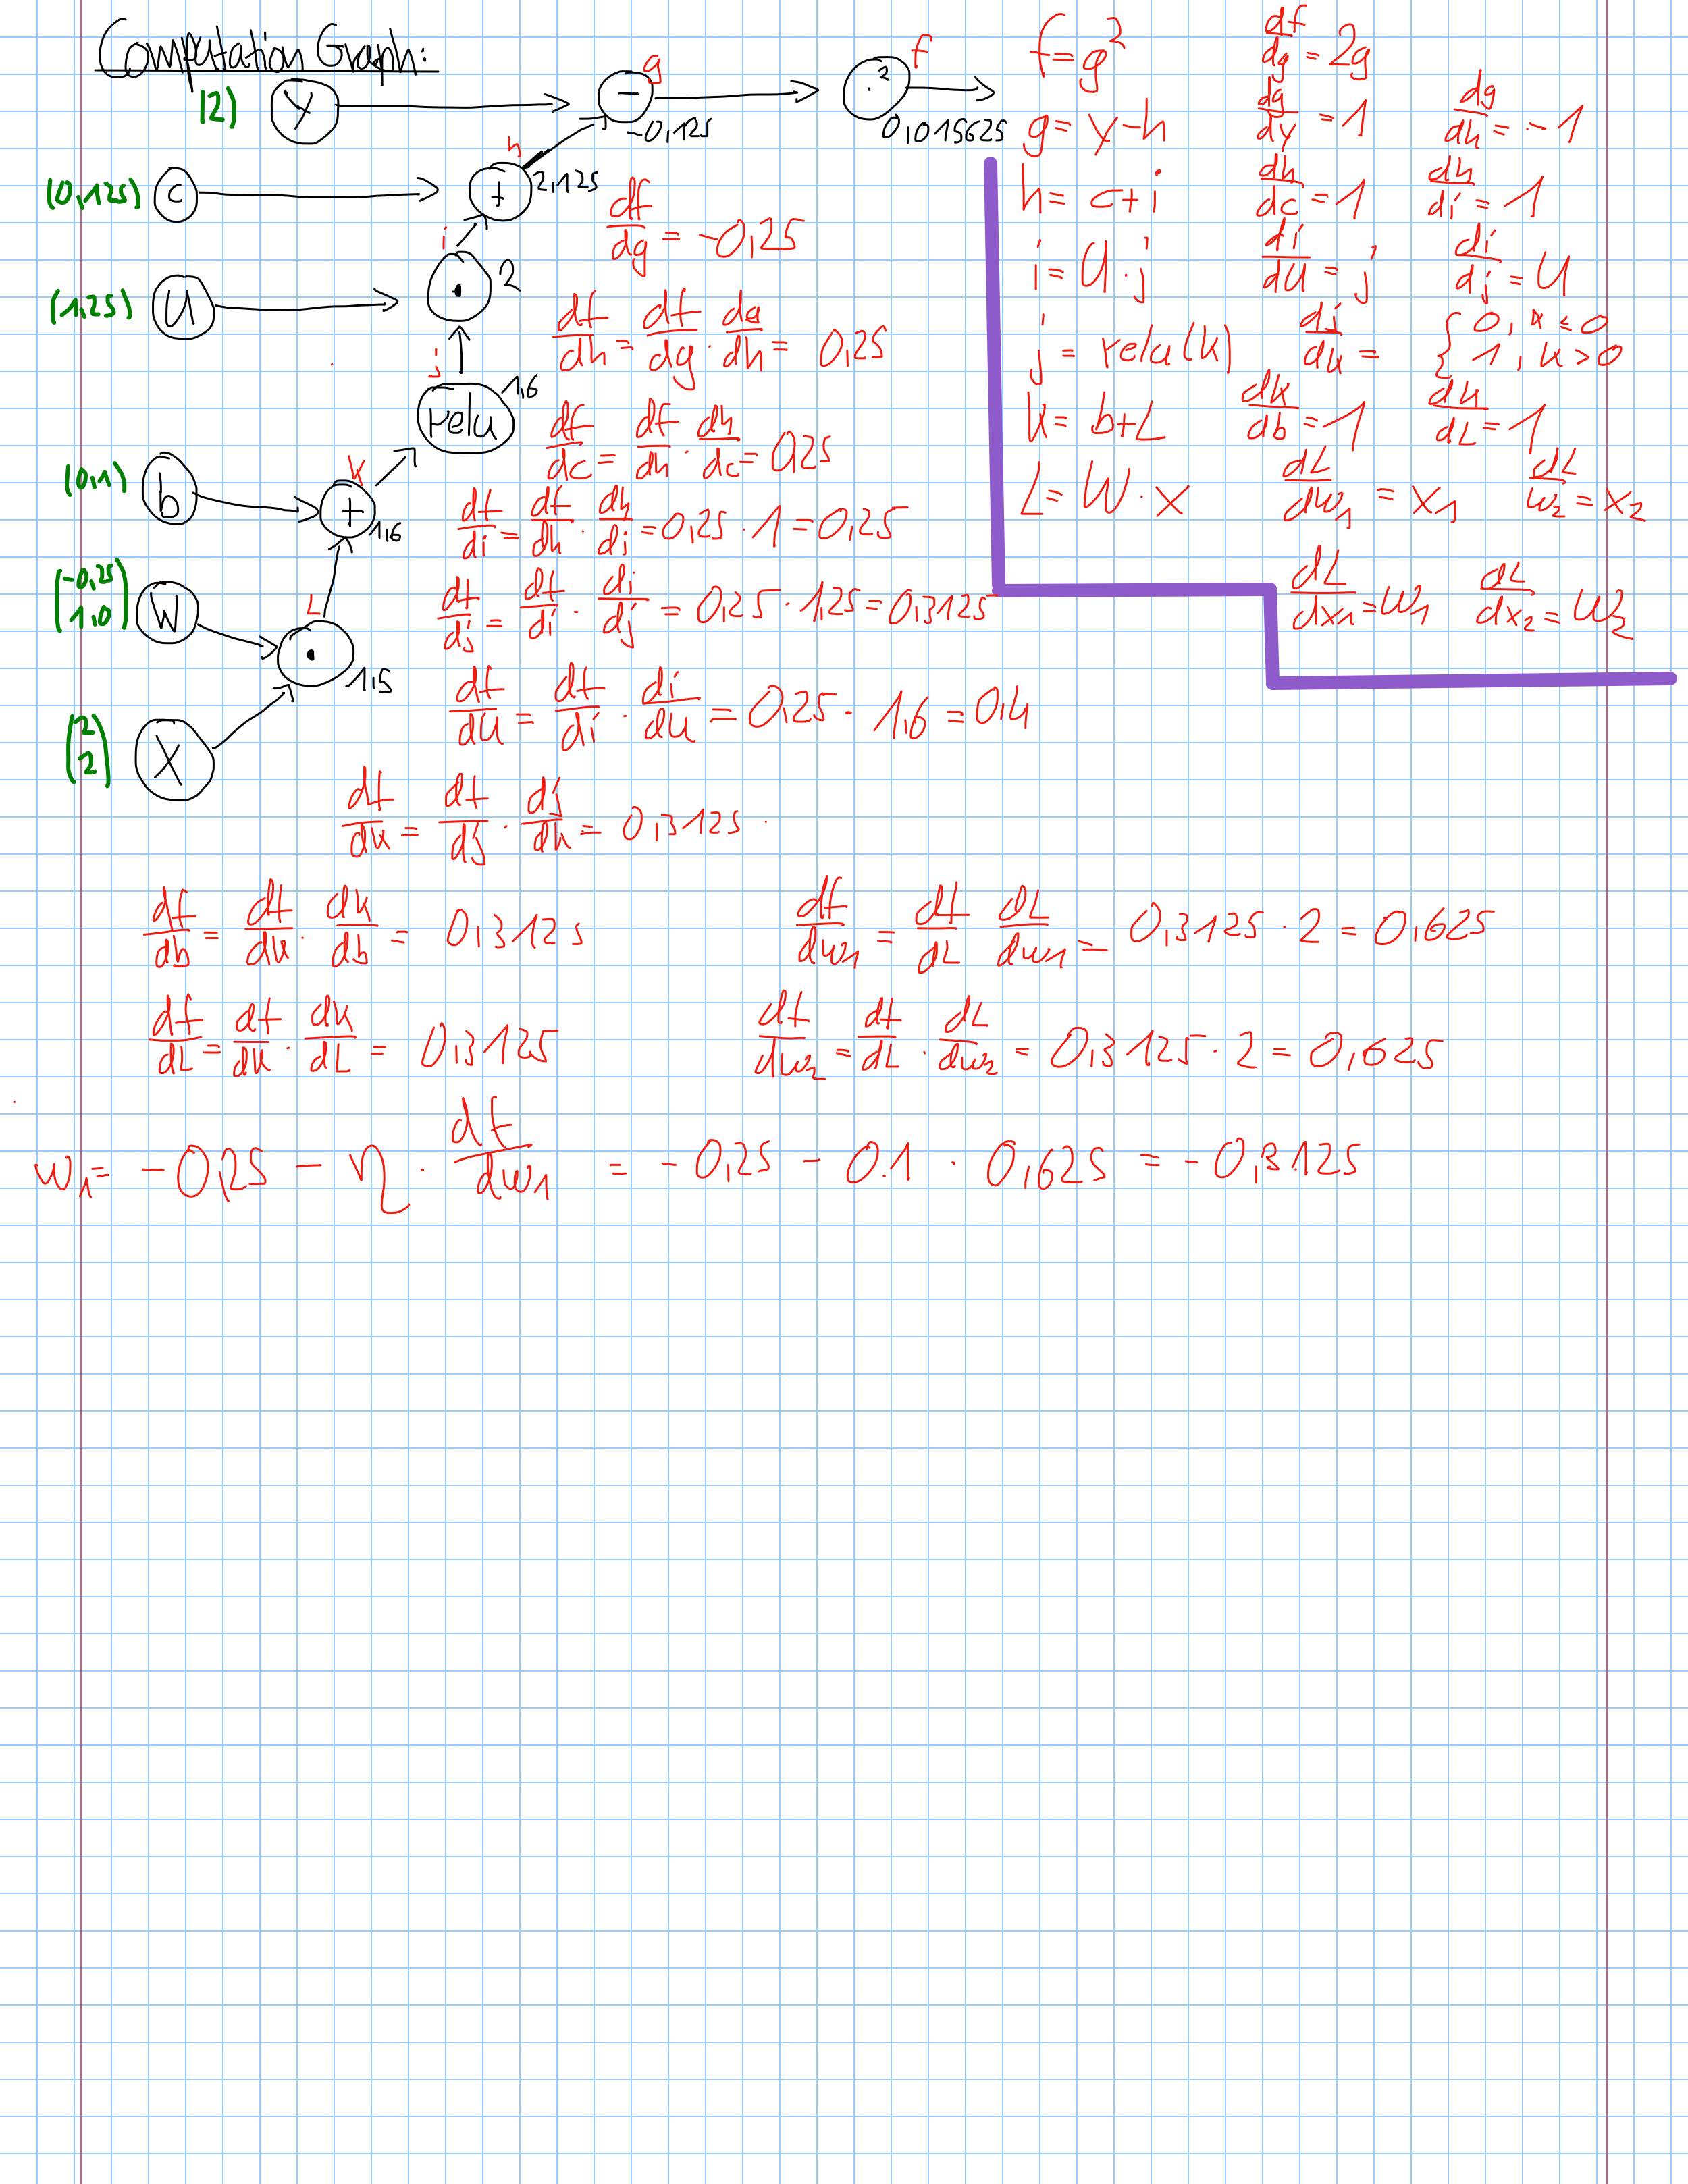 Computation Graph:
(2) y − g -0,125 ·² f 0,015625
(0,125) c + h 2,125
(1,25) U · i 2
relu j 1,6
(0,1) b + k 1,6
(-0,25 1,0) W
· L 1,5
(2 2) X
f = g² df/dg = 2g
g = y-h dg/dy = 1 dg/dh = -1
h = c+i dh/dc = 1 dh/di = 1
i = U·j di/dU = j di/dj = U
j = relu(k) dj/dk = { 0, k ≤ 0 1, k > 0
k = b+L dk/db = 1 dk/dL = 1
L = W·X dL/dw₁ = x₁ dL/w₂ = x₂
dL/dx₁ = w₁ dL/dx₂ = w₂
df/dg = -0,25
df/dh = df/dg · dg/dh = 0,25
df/dc = df/dh · dh/dc = 0,25
df/di = df/dh · dh/di = 0,25 · 1 = 0,25
df/dj = df/di · di/dj = 0,25 · 1,25 = 0,3125
df/dU = df/di · di/dU = 0,25 · 1,6 = 0,4
df/dk = df/dj · dj/dk = 0,3125
df/db = df/dk · dk/db = 0,3125
df/dw₁ = df/dL dL/dw₁ = 0,3125 · 2 = 0,625
df/dL = df/dk · dk/dL = 0,3125
df/dw₂ = df/dL · dL/dw₂ = 0,3125 · 2 = 0,625
w₁ = -0,25 - η · df/dw₁ = -0,25 - 0.1 · 0,625 = -0,3125